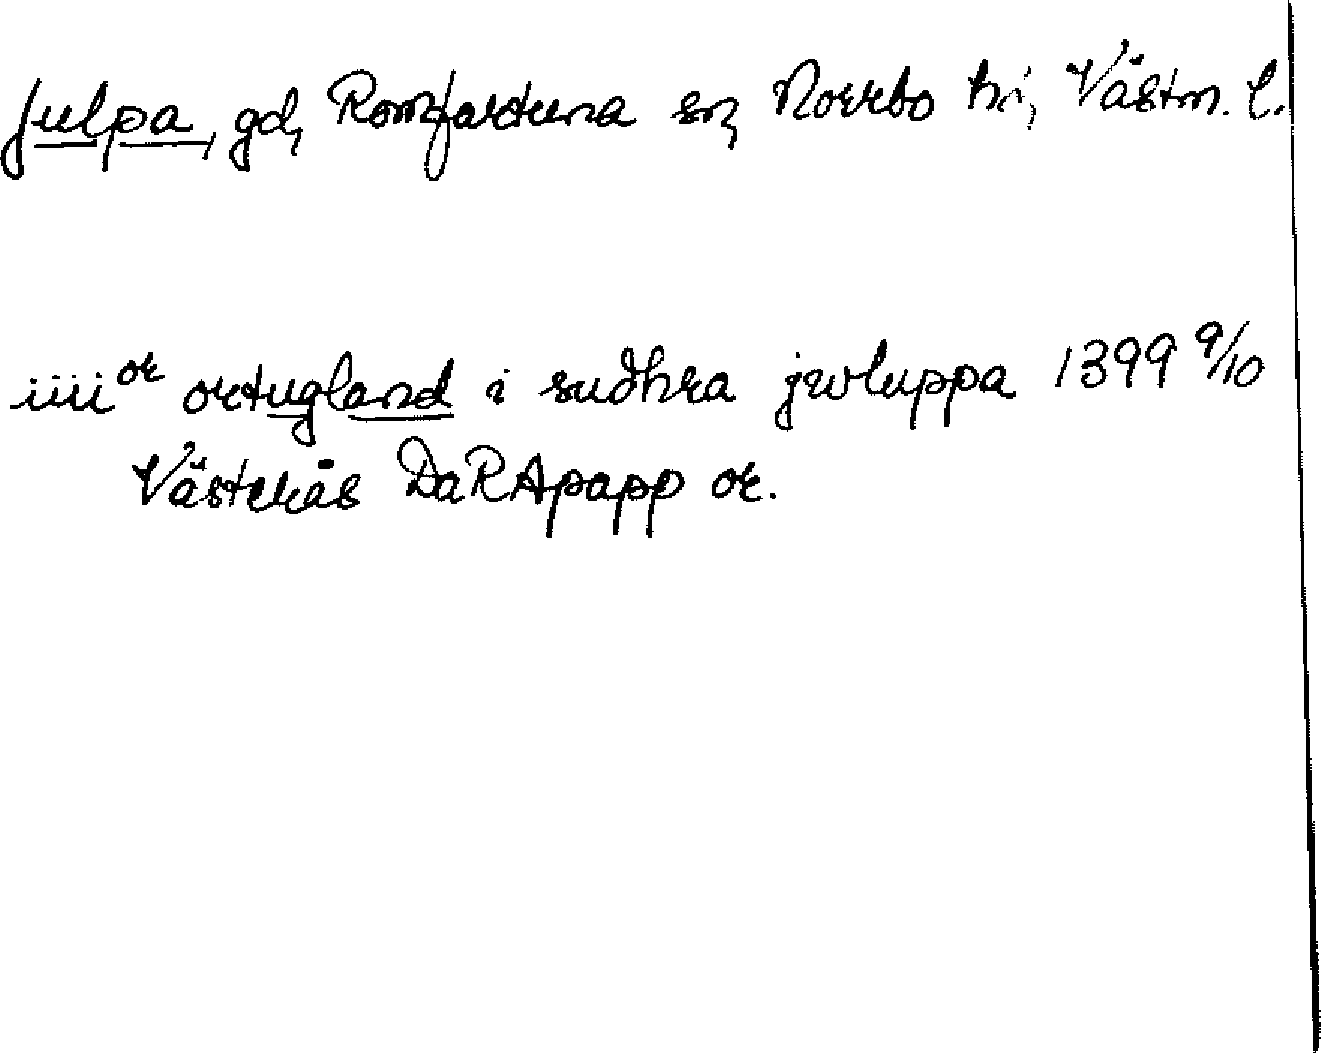 Julpa, gd, Romfartuna sn, Norrbo hd, Västm. l.
iiiior ortugland i sudhra jwluppa 1399 9/10
Västerås DaRApapp or.